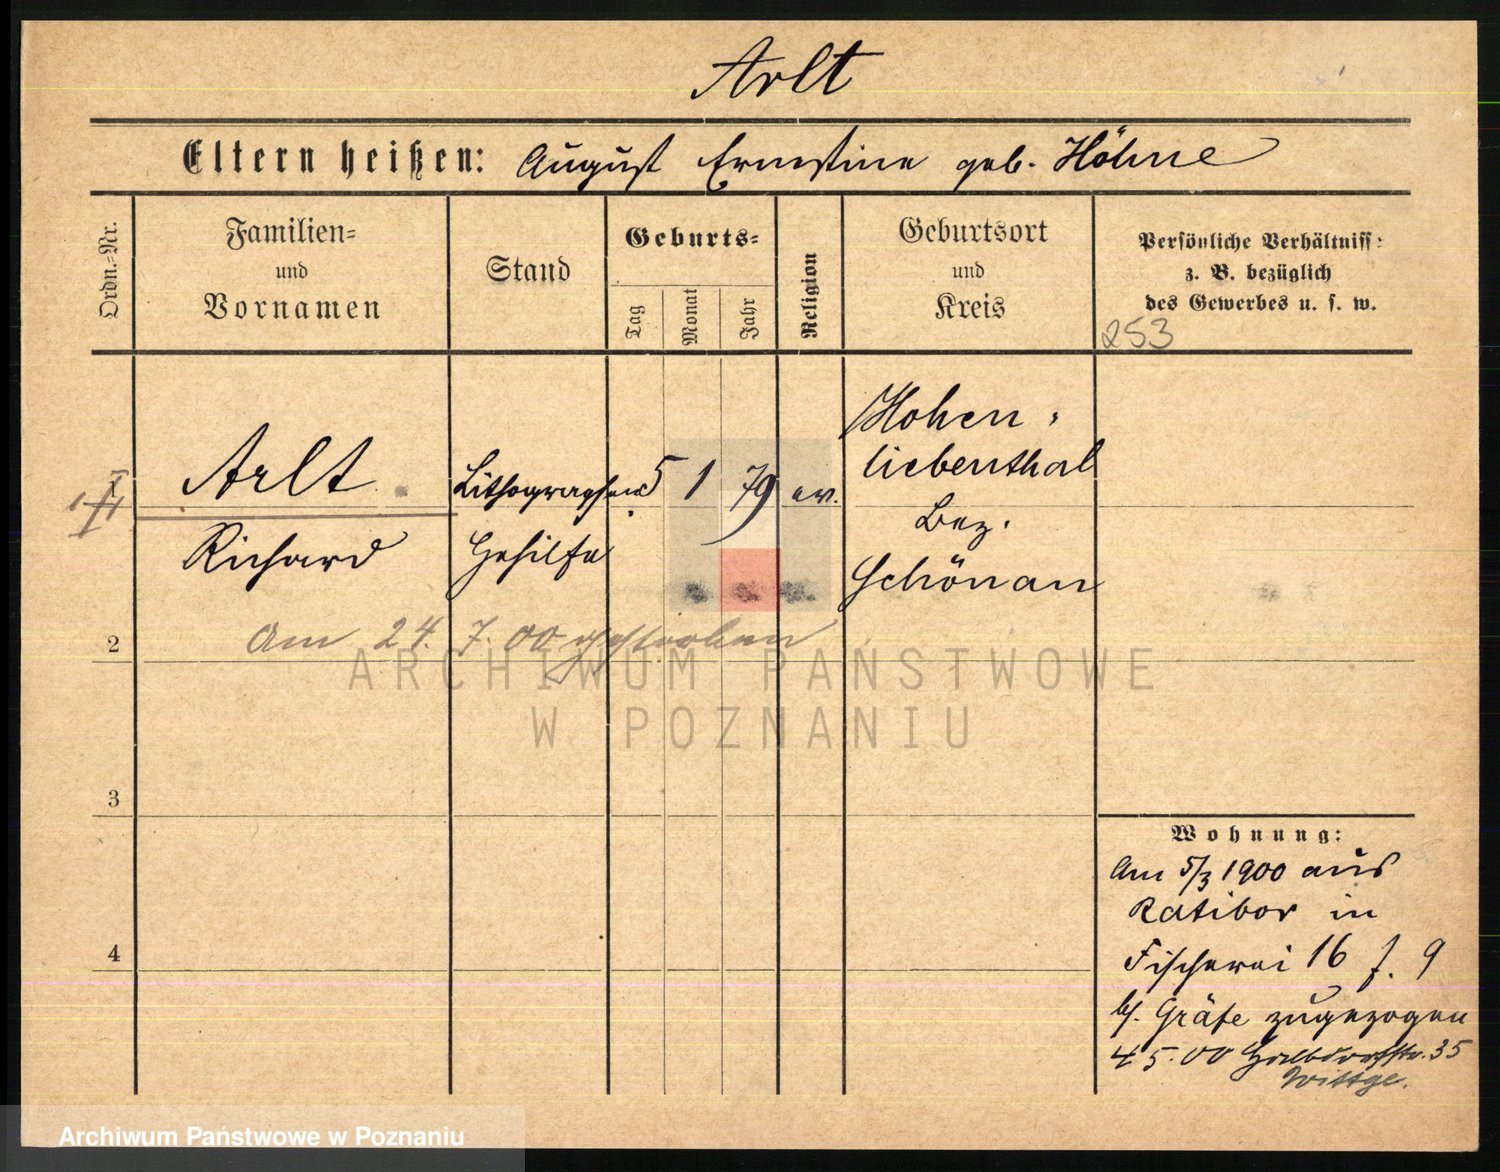 Arlt
Eltern heißen: August Ernestine geb. Höhne
Ordn.=Nr.
Familien=
und
Vornamen
Stand
Geburts=
Tag
Monat
Jahr
Religion
Geburtsort
und
Kreis
Persönliche Verhältniss:
z. B. bezüglich
des Gewerbes u. s. w.
253
Arlt
Richard
Lithographen
Gehilfe
5 1 79 ev.
Hohen
liebenthal
Bez.
Schönau
Am 24. 7. 00 gestorben
2
3
4
Wohnung:
Am 5/3 1900 aus
Ratibor in
Fischerei 16 f. 9
b/. Gräfe zugezogen
4 5. 00 Halbdorfstr. 35
Wittge.
ARCHIWUM PAŃSTWOWE
W POZNANIU
Archiwum Państwowe w Poznaniu